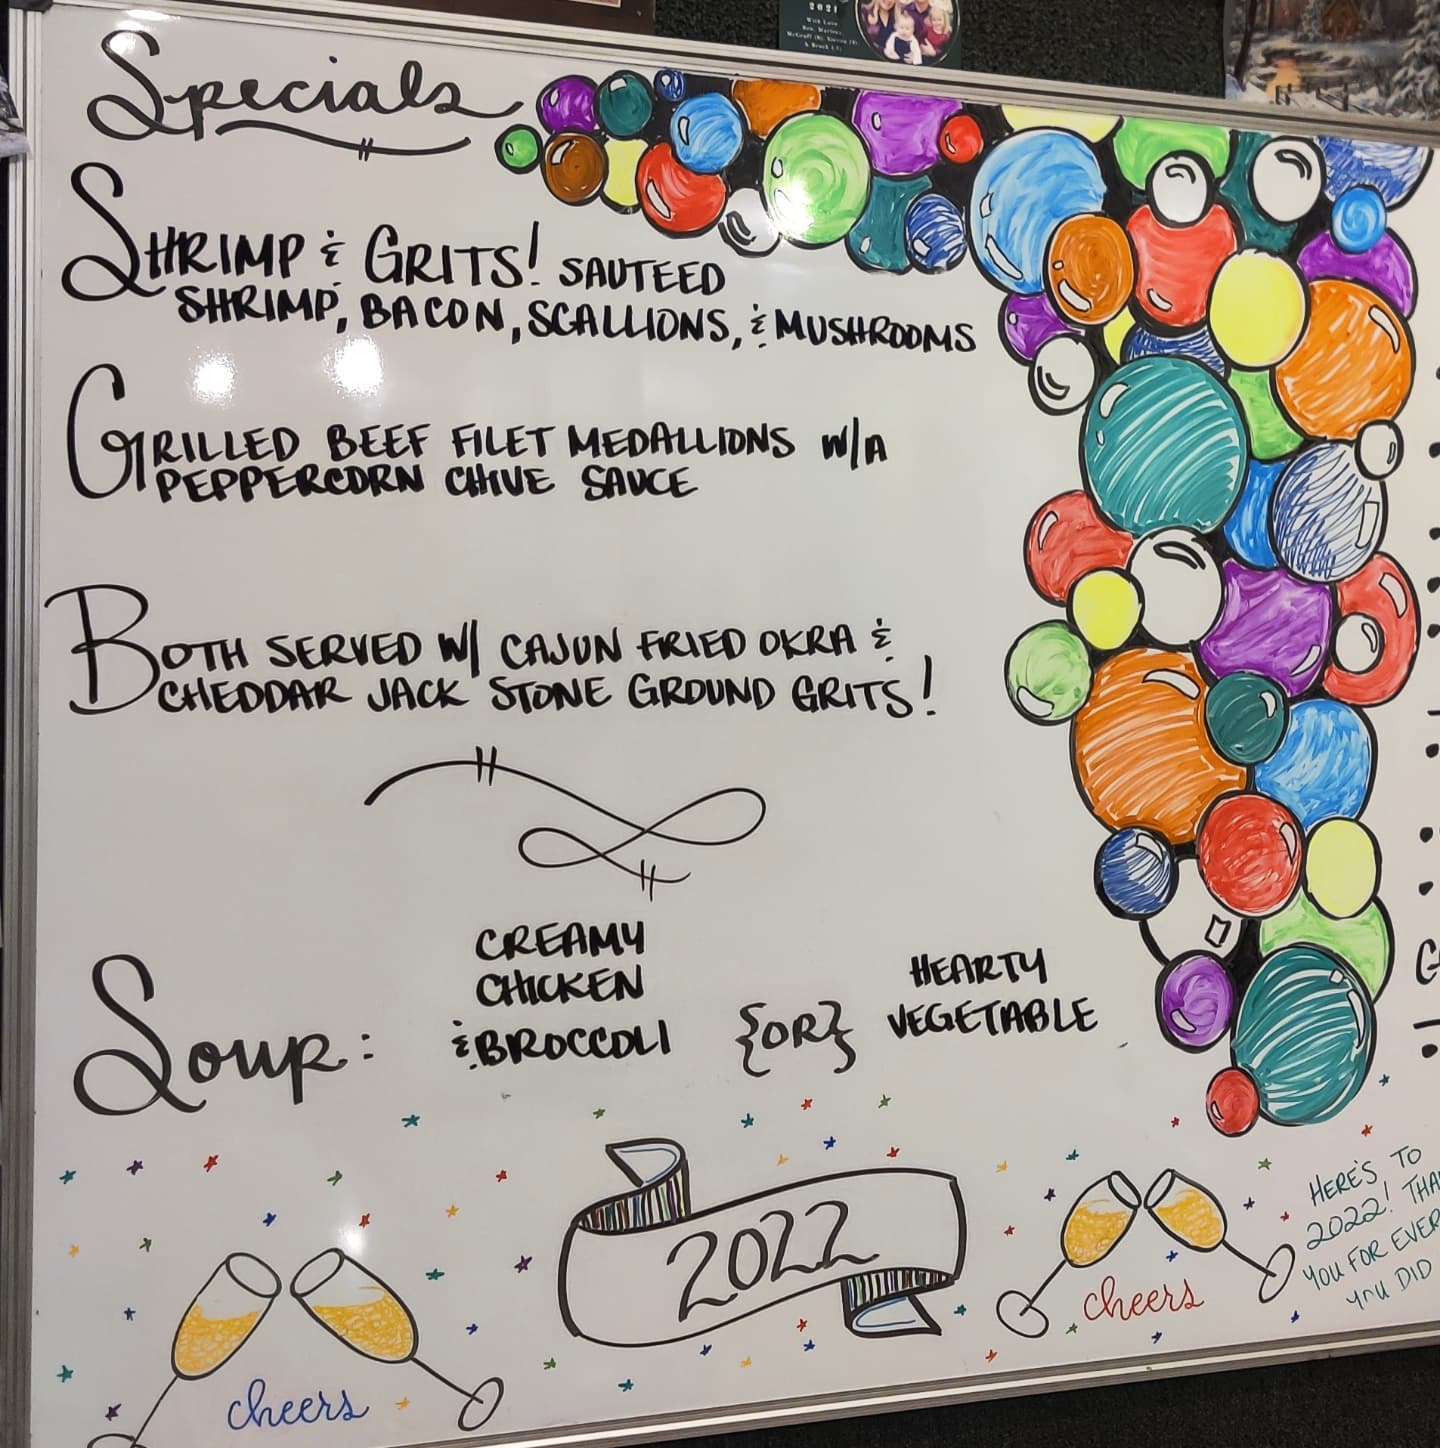 2021
With Love
Specials
SHRIMP & GRITS! SAUTEED
SHRIMP, BACON, SCALLIONS, & MUSHROOMS
GRILLED BEEF FILET MEDALLIONS W/A
PEPPERCORN CHIVE SAUCE
BOTH SERVED W/ CAJUN FRIED OKRA &
CHEDDAR JACK STONE GROUND GRITS!
SOUP:
CREAMY
CHICKEN
& BROCCOLI
{OR}
HEARTY
VEGETABLE
2022
cheers
cheers
HERE'S TO
2022! THA
YOU FOR EVER
YOU DID